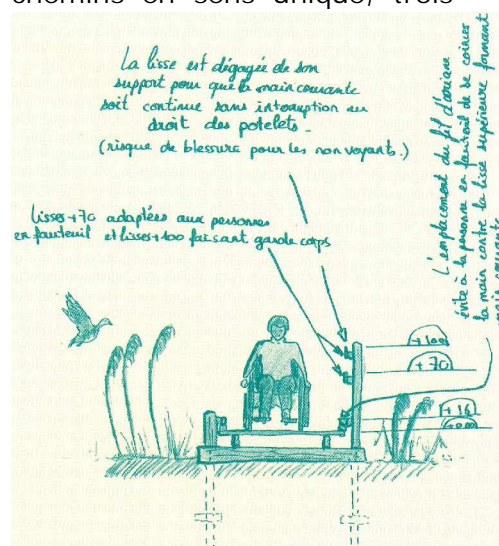 chemins en sens unique, trois
La lisse est dégagée de son
support pour que la main courante
soit continue sans interruption au
droit des potelets -
(risque de blessure pour les non voyants.)
lisses +70 adaptées aux personnes
en fauteuil et lisses +100 faisant garde corps
L'emplacement du fil d'ariane
évite à la personne en fauteuil de se coincer
la main contre la lisse supérieure formant
main courante
+100
+70
+16
+0.00